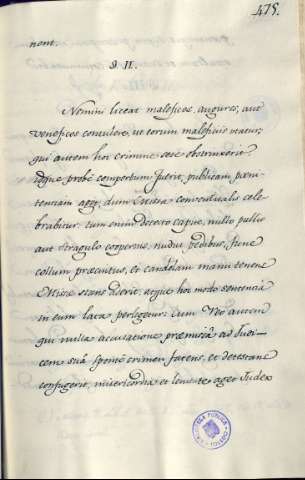 475.
nent.
§ II.
Nemini liceat maleficos, augures, aut
veneficos consulere, ut eorum maleficiis utatur;
qui autem hoc crimine sese obstrinxerit
idque probè compertum fuerit, publicam pœni-
tentiam aget, dum Missa conventualis cele-
brabitur: tum enim detecto capite, nullo pallio
aut stragulo coopertus, nudus pedibus, fune
collum præcinctus, et candelam manu tenens
Missæ stans aderit, atque hoc modo sententia
in eum lata perlegetur: Cum Vero autem
qui nulla accusatione præmissâ ad Judi-
cem suâ sponte crimen fatens, et detestans
confugerit, misericordia et leniter aget Judex
BIBLIOTECA PUBLICA
TOLEDO